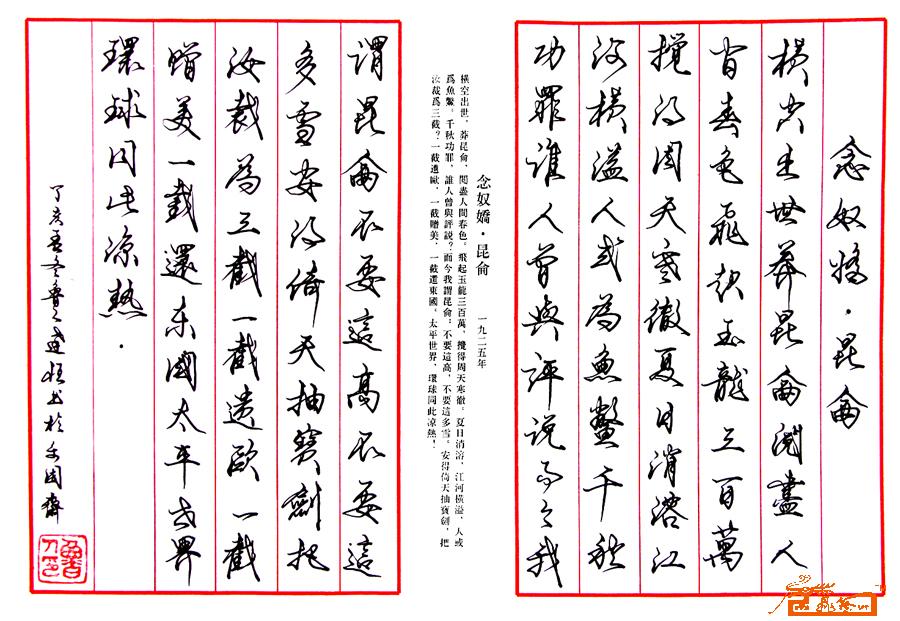 念奴嬌·昆侖
橫空出世莽昆侖閱盡人
間春色飛起玉龍三百萬
攪得周天寒徹夏日消溶江
河橫溢人或為魚鱉千秋
功罪誰人曾與評說而今我
念奴嬌·昆侖 一九二五年
橫空出世,莽昆侖,閱盡人間春色。飛起玉龍三百萬,攪得周天寒徹。夏日消溶,江河橫溢,人或
爲魚鱉。千秋功罪,誰人曾與評説?而今我謂昆侖:不要這高,不要這多雪。安得倚天抽寶劍,把
汝裁爲三截?一截遺歐,一截贈美,一截還東國。太平世界,環球同此凉熱!
謂昆侖不要這高不要這
多雪安得倚天抽寶劍把
汝裁為三截一截遺歐一截
贈美一截還东國太平世界
環球同此凉熱·
丁亥孟冬魯建恒书於